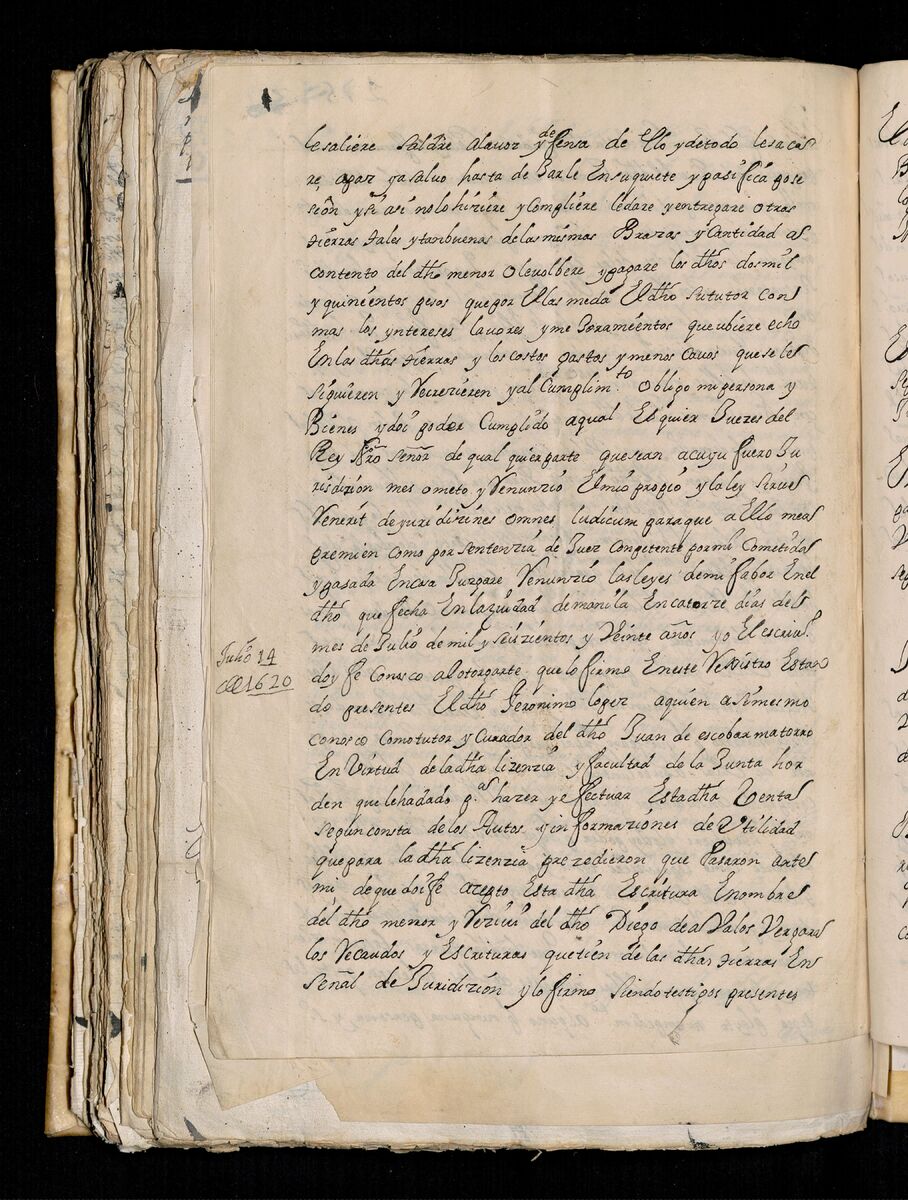 lesaliere saldre alavoz y defensa de ello y detodo lesaca
re apaz ya salvo hasta de Jarle Ensuquiete y pasifica pose
sion y si asi nolo hiziere y Compliere ledare y entregare otras
tierras tales ytanbuenas delas mismas Brazas y Cantidad al
contento del dho menor Olevolbere ypagare los dhos dosmil
y quinientos pesos quepor Ellas meda El dho su tutor con
mas los yntereses lavores y me Joramientos que ubiere echo
En las dhas tierras y los costos gastos y menos Cavos que se les
siguieren y Recrezieren y al Cumplimto obligo mi persona y
Bienes y doi poder Cumplido aqual Esquier Juezes del
Rey Nro Señor de qual quier parte que sean acuyu fuero Ju
risdizion mes ometo y Renunzio El mio propio y la ley Sirued
Venerit de yuridizines omnes Iudicum paraque a Ello mea
premien como por sentenzia de Juez Competente por mi Cometida
y pasada En cosa Juzgare Renunzio las leyes de mi fabor En el
dho que fecha En la ziudad de manila En catorze dias del
mes de Julio de mil y seiszientos y Veinte años yo El escriu.
doy fe Conosco al otorgante que lo firmo En este Rexistro Estan
do presentes El dho Jeronimo lopez aquien asimesmo
Conosco Como tutor y Curador del dho Juan de escobar matorro
En Virtud de la dha lizenzia y facultad de la Junta hor
den que lehadado pa. hazer y efectuar Esta dha Venta
segun consta de los Autos y informaziones de Utilidad
que para la dha lizenzia prezedieron que Pasaron ante
mi de que doi fe azepto Esta dha Escritura En ombre
del dho menor y Reziui del dho Diego de a Valos Vergara
los Recaudos y Escrituras que tien de las dhas tierras En
Señal de Juridizion y lo firmo Siendo testigos presentes
Julio 14
de 1620